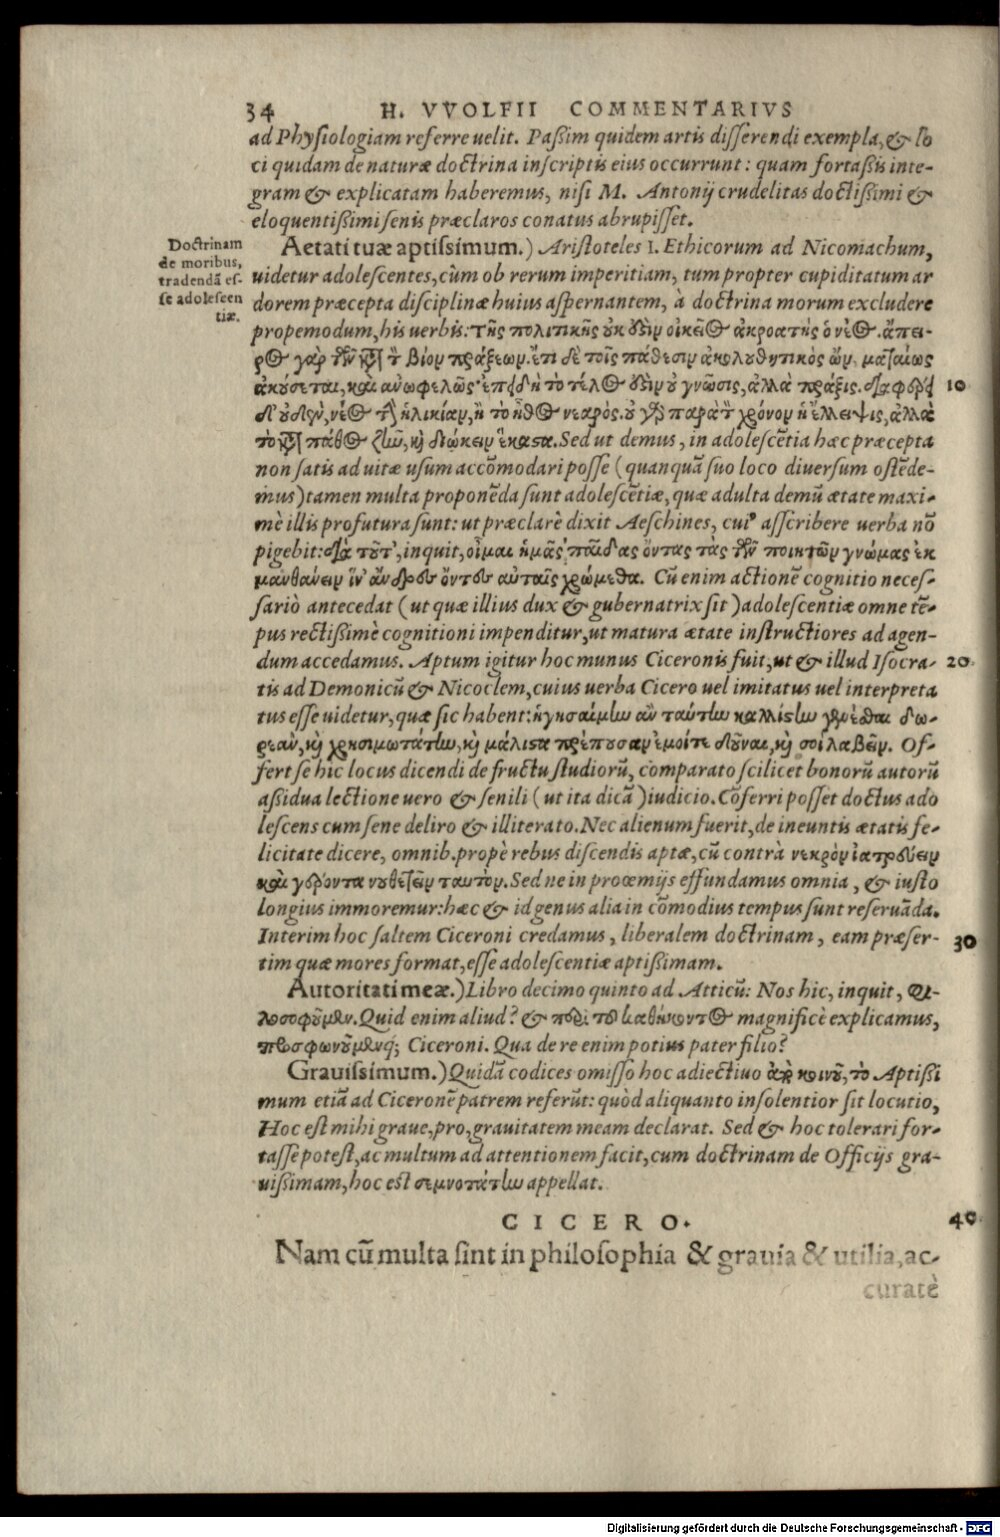 34 H. VVOLFII COMMENTARIVS
ad Physiologiam referre uelit. Paßim quidem artis disserendi exempla, & lo
ci quidam de naturæ doctrina inscriptis eius occurrunt: quam fortaßis inte-
gram & explicatam haberemus, nisi M. Antonij crudelitas doctißimi &
eloquentißimi senis præclaros conatus abrupisset.
Doctrinam
de moribus,
tradendã es-
se adolescen
tiæ.
Aetati tuæ aptissimum.) Aristoteles I. Ethicorum ad Nicomachum,
uidetur adolescentes, cùm ob rerum imperitiam, tum propter cupiditatum ar
dorem præcepta disciplinæ huius aspernantem, à doctrina morum excludere
propemodum, his uerbis: τῆς πολιτικῆς οὐκ οὖν οἰκεῖος ἀκροατὴς ὁ νέος. ἄπει-
ρος γὰρ τῶν κατὰ τὸν βίον πράξεων. ἔτι δὲ τοῖς πάθεσιν ἀκολουθητικὸς ὢν, ματαίως
ἀκούσεται, καὶ ἀνωφελῶς· ἐπειδὴ τὸ τέλος οὐ γνῶσις, ἀλλὰ πρᾶξις. διαφέρει 10
δ' οὐδὲν, νέος τὴν ἡλικίαν, ἢ τὸ ἦθος νεαρός. οὐ γὰρ παρὰ τὸν χρόνον ἡ ἔλλειψις, ἀλλὰ
τὸ κατὰ πάθος ζῆν, καὶ διώκειν ἕκαστα. Sed ut demus, in adolescẽtia hæc præcepta
non satis ad uitæ usum accõmodari posse (quanquã suo loco diuersum ostẽde-
mus) tamen multa proponẽda sunt adolescẽtiæ, quæ adulta demũ ætate maxi-
mè illis profutura sunt: ut præclarè dixit Aeschines, cui' asscribere uerba nõ
pigebit: διὰ τοῦτ', inquit, οἶμαι ἡμᾶς παῖδας ὄντας τὰς τῶν ποιητῶν γνώμας ἐκ
μανθάνειν ἵν' ἄνδρες ὄντες αὐταῖς χρώμεθα. Cũ enim actionẽ cognitio neces-
sariò antecedat (ut quæ illius dux & gubernatrix sit) adolescentiæ omne tẽ-
pus rectißimè cognitioni impenditur, ut matura ætate instructiores ad agen-
dum accedamus. Aptum igitur hoc munus Ciceronis fuit, ut & illud Isocra- 20
tis ad Demonicũ & Nicoclem, cuius uerba Cicero uel imitatus uel interpreta
tus esse uidetur, quæ sic habent: ἡγησαίμην ἂν ταύτην καλλίστην γενέσθαι δω-
ρεὰν, καὶ χρησιμωτάτην, καὶ μάλιστα πρέπουσαν ἐμοί τε δοῦναι, καὶ σοὶ λαβεῖν. Of-
fert se hic locus dicendi de fructu studiorũ, comparato scilicet bonorũ autorũ
aßidua lectione uero & senili (ut ita dicã) iudicio. Cõferri posset doctus ado
lescens cum sene deliro & illiterato. Nec alienum fuerit, de ineuntis ætatis fe-
licitate dicere, omnib. propè rebus discendis aptæ, cũ contrà νεκρὸν ἰατρεύειν
καὶ γέροντα νουθετεῖν ταυτὸν. Sed ne in proœmijs effundamus omnia, & iusto
longius immoremur: hæc & id genus alia in cõmodius tempus sunt reseruãda.
Interim hoc saltem Ciceroni credamus, liberalem doctrinam, eam præser- 30
tim quæ mores format, esse adolescentiæ aptißimam.
Autoritati meæ.) Libro decimo quinto ad Atticũ: Nos hic, inquit, φι-
λοσοφοῦμεν. Quid enim aliud? & περὶ τοῦ καθήκοντος magnificè explicamus,
προσφωνοῦμενq́; Ciceroni. Qua de re enim potius pater filio?
Grauissimum.) Quidã codices omisso hoc adiectiuo ἀπὸ κοινοῦ, τὸ Aptißi
mum etiã ad Ciceronẽ patrem referũt: quòd aliquanto insolentior sit locutio,
Hoc est mihi graue, pro, grauitatem meam declarat. Sed & hoc tolerari for-
tasse potest, ac multum ad attentionem facit, cum doctrinam de Officijs gra-
uißimam, hoc est σεμνοτάτην appellat.
CICERO. 40
Nam cũ multa sint in philosophia & grauia & utilia, ac-
curatè
Digitalisierung gefördert durch die Deutsche Forschungsgemeinschaft - DFG